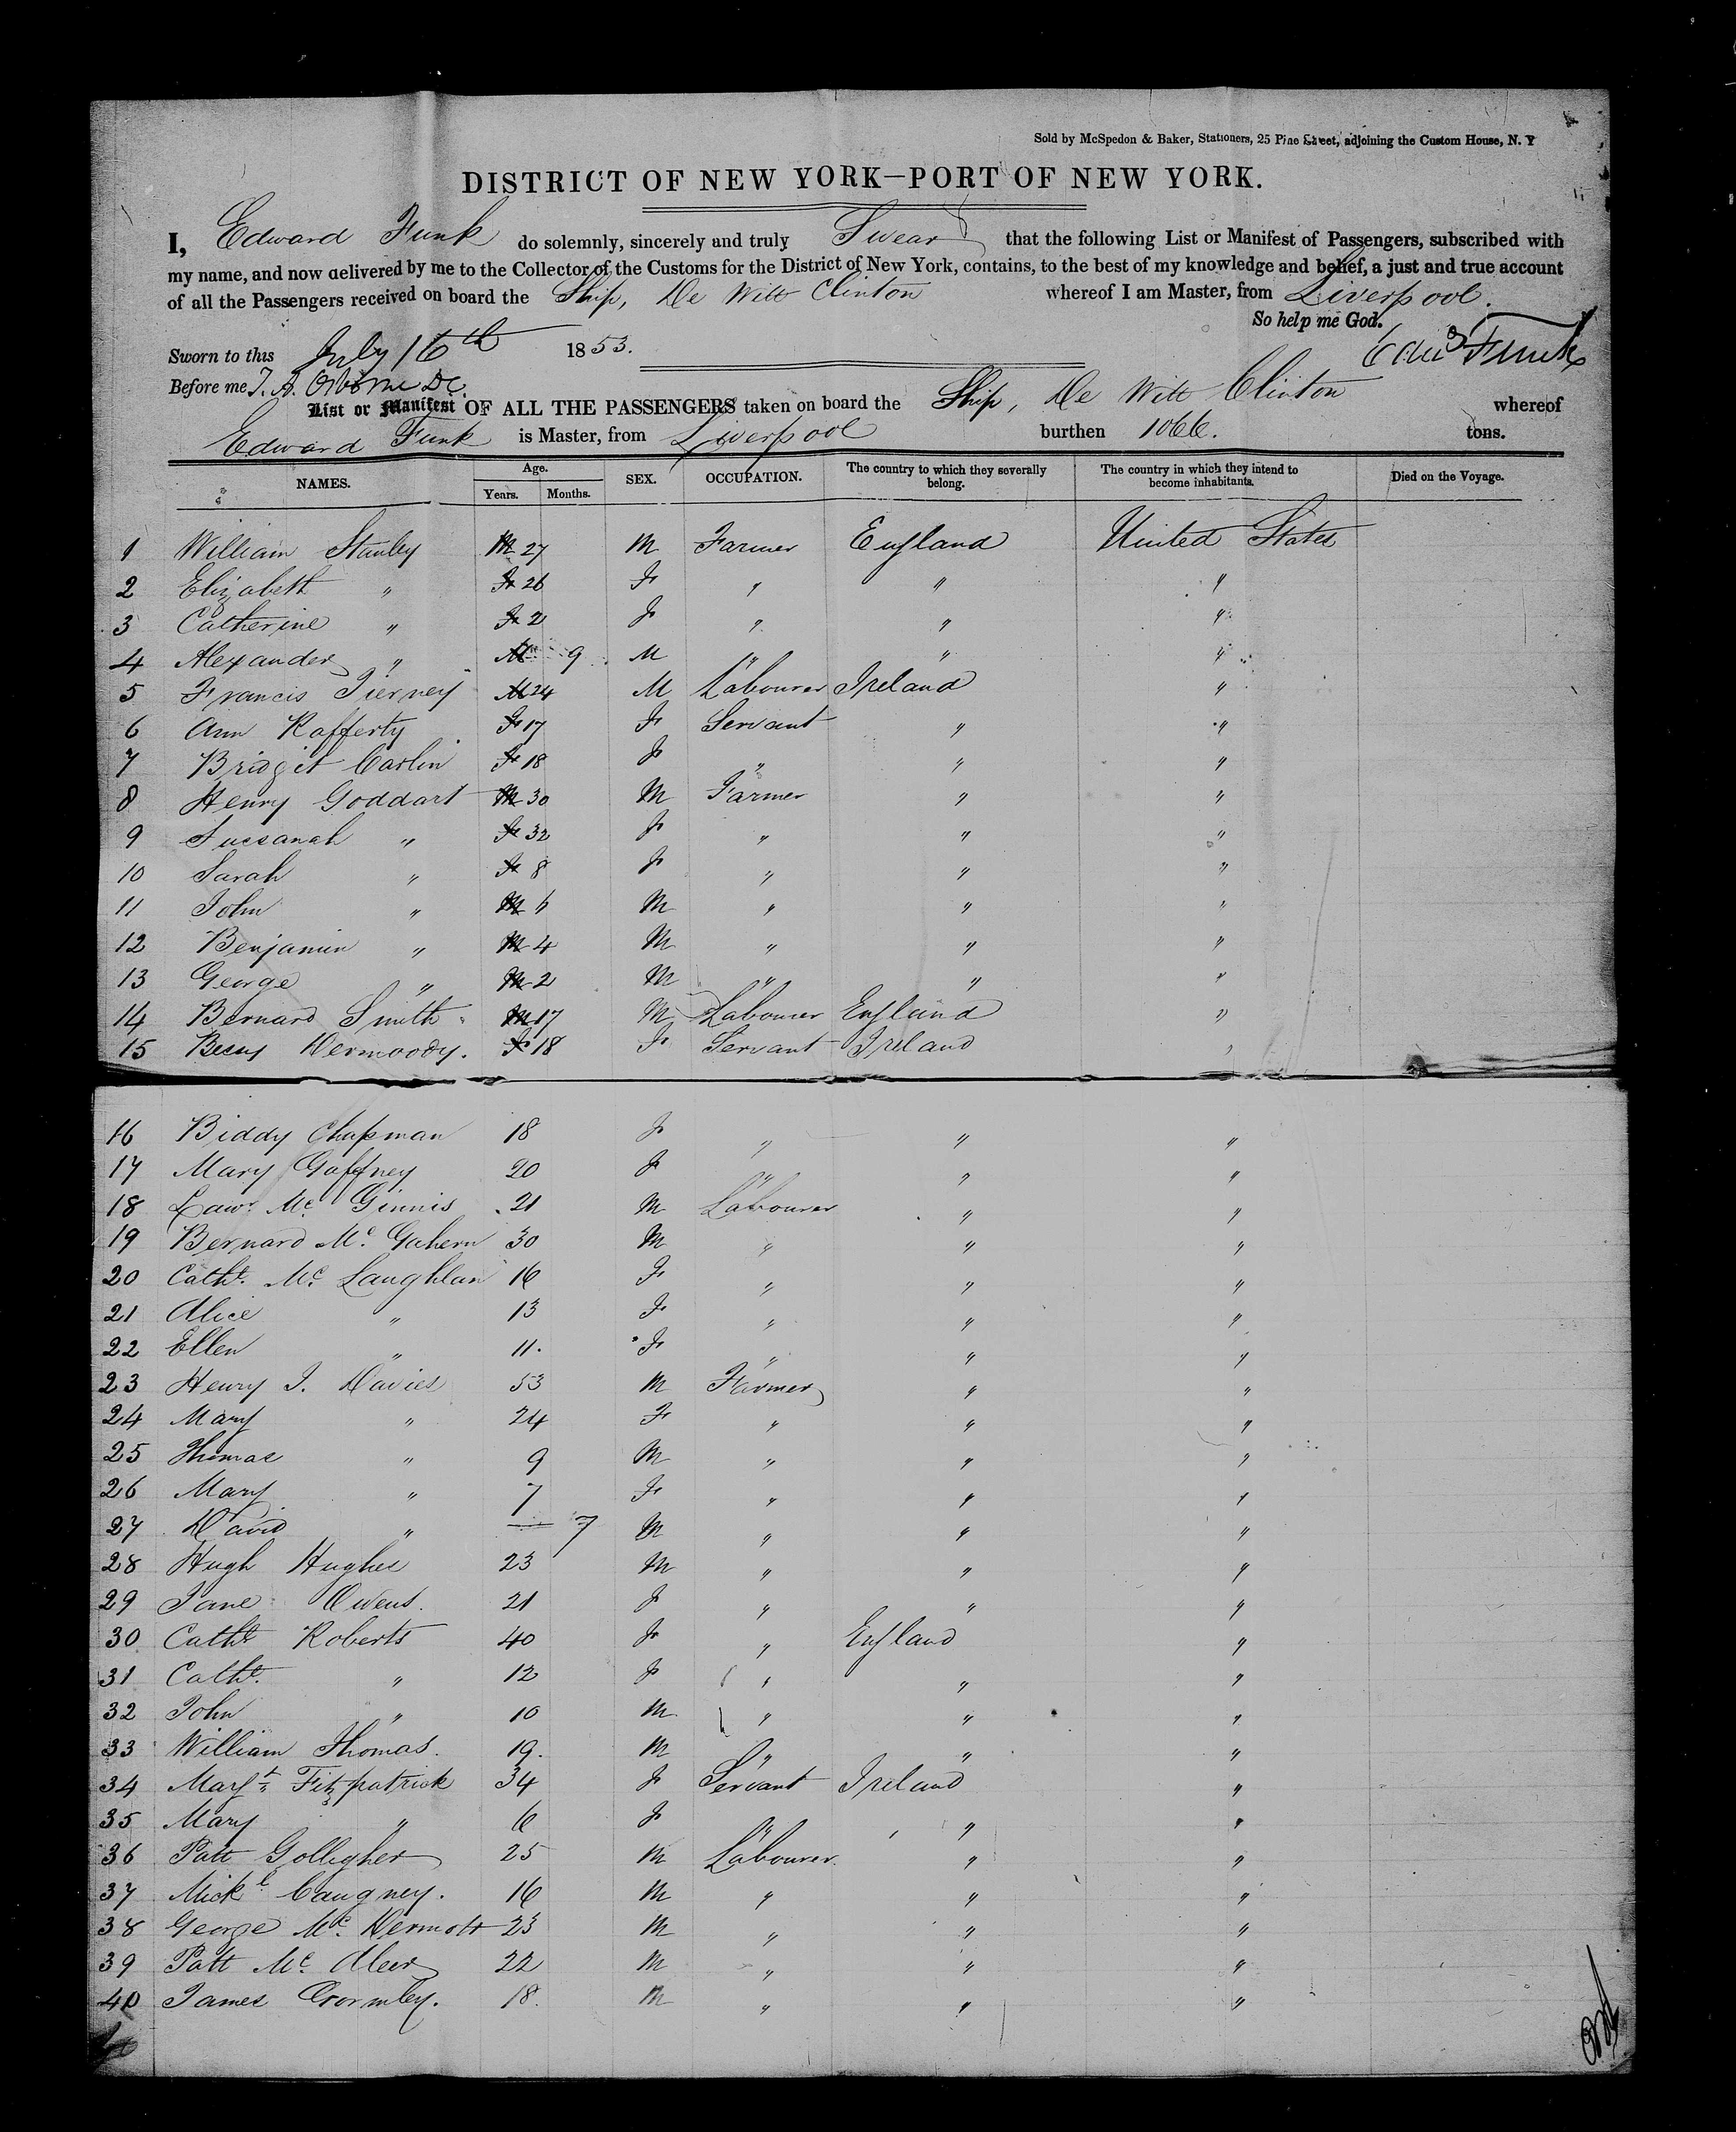 Sold by McSpedon & Baker, Stationers, 25 Pine Street, adjoining the Custom House, N. Y
DISTRICT OF NEW YORK—PORT OF NEW YORK.
I, Edward Funk do solemnly, sincerely and truly Swear that the following List or Manifest of Passengers, subscribed with
my name, and now delivered by me to the Collector of the Customs for the District of New York, contains, to the best of my knowledge and belief, a just and true account
of all the Passengers received on board the Ship, De Witt Clinton whereof I am Master, from Liverpool.
So help me God.
Sworn to this July 16th 1853. Edwd Funk
Before me T. A. Osborne DC.
List or Manifest OF ALL THE PASSENGERS taken on board the Ship, De Witt Clinton whereof
Edward Funk is Master, from Liverpool burthen 1066. tons.
NAMES. Age. Years. Months. SEX. OCCUPATION. The country to which they severally belong. The country in which they intend to become inhabitants. Died on the Voyage.
1 William Stanley M 27 M Farmer England United States
2 Elizabeth " F 26 F " " "
3 Catherine " F 2 F " " "
4 Alexander " M 9 M " " "
5 Francis Tierney M 24 M Labourer Ireland "
6 Ann Rafferty F 17 F Servant " "
7 Bridgit Carlin F 18 F " " "
8 Henry Goddart M 30 M Farmer " "
9 Sucsanah " F 32 F " " "
10 Sarah " F 8 F " " "
11 John " M 6 M " " "
12 Benjamin " M 4 M " " "
13 George " M 2 M " " "
14 Bernard Smith M 17 M Labourer England "
15 Dermoody. F 18 F Servant Ireland "
16 Biddy Chapman 18 F " " "
17 Mary Gaffney 20 F " " "
18 Lawr. Mc. Ginnis 21 M Labourer " "
19 Bernard Mc. Gahern 30 M " " "
20 Catht. Mc. Laughlan 16 F " " "
21 Alice " 13 F " " "
22 Ellen " 11. F " " "
23 Henry J. Davies 53 M Farmer " "
24 Mary " 24 F " " "
25 Thomas " 9 M " " "
26 Mary " 7 F " " "
27 David " — 7 M " " "
28 Hugh Hughes 23 M " " "
29 Jane Owens. 21 F " " "
30 Catht. Roberts 40 F " England "
31 Catht. " 12 F " " "
32 John " 10 M " " "
33 William Thomas. 19. M " " "
34 Maryt. Fitzpatrick 34 F Servant Ireland "
35 Mary " 6 F " " "
36 Patt Gollegher 25 M Labourer. " "
37 Mickl. Caugney. 16 M " " "
38 George Mc. Dermott 23 M " " "
39 Patt Mc. Aleer 22 M " " "
40 James Gormley. 18. M " " "